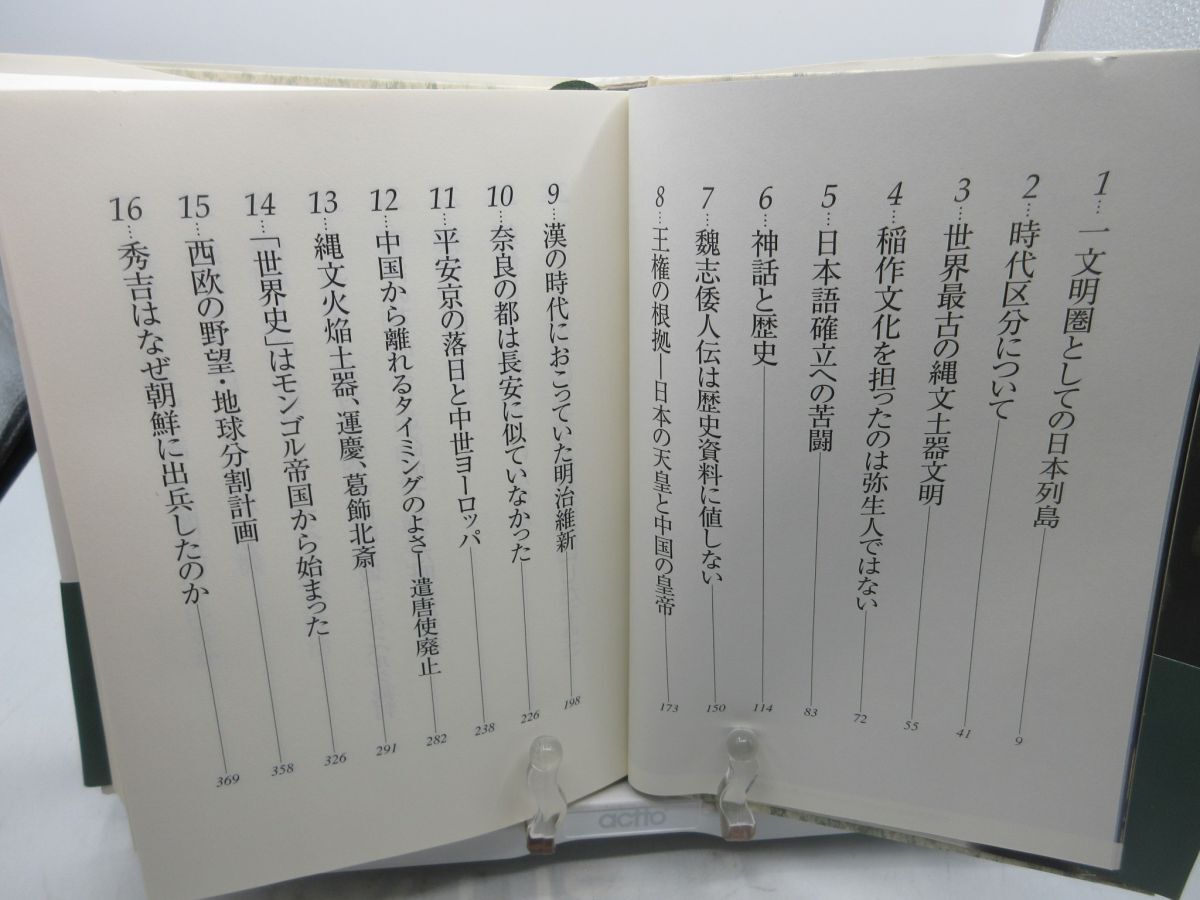 1…一文明圏としての日本列島 9
2…時代区分について 41
3…世界最古の縄文土器文明 55
4…稲作文化を担ったのは弥生人ではない 72
5…日本語確立への苦闘 83
6…神話と歴史 114
7…魏志倭人伝は歴史資料に値しない 150
8…王権の根拠―日本の天皇と中国の皇帝 173
9…漢の時代におこっていた明治維新 198
10…奈良の都は長安に似ていなかった 226
11…平安京の落日と中世ヨーロッパ 238
12…中国から離れるタイミングのよさ―遣唐使廃止 282
13…縄文火焔土器、運慶、葛飾北斎 291
14…「世界史」はモンゴル帝国から始まった 326
15…西欧の野望・地球分割計画 358
16…秀吉はなぜ朝鮮に出兵したのか 369
actto